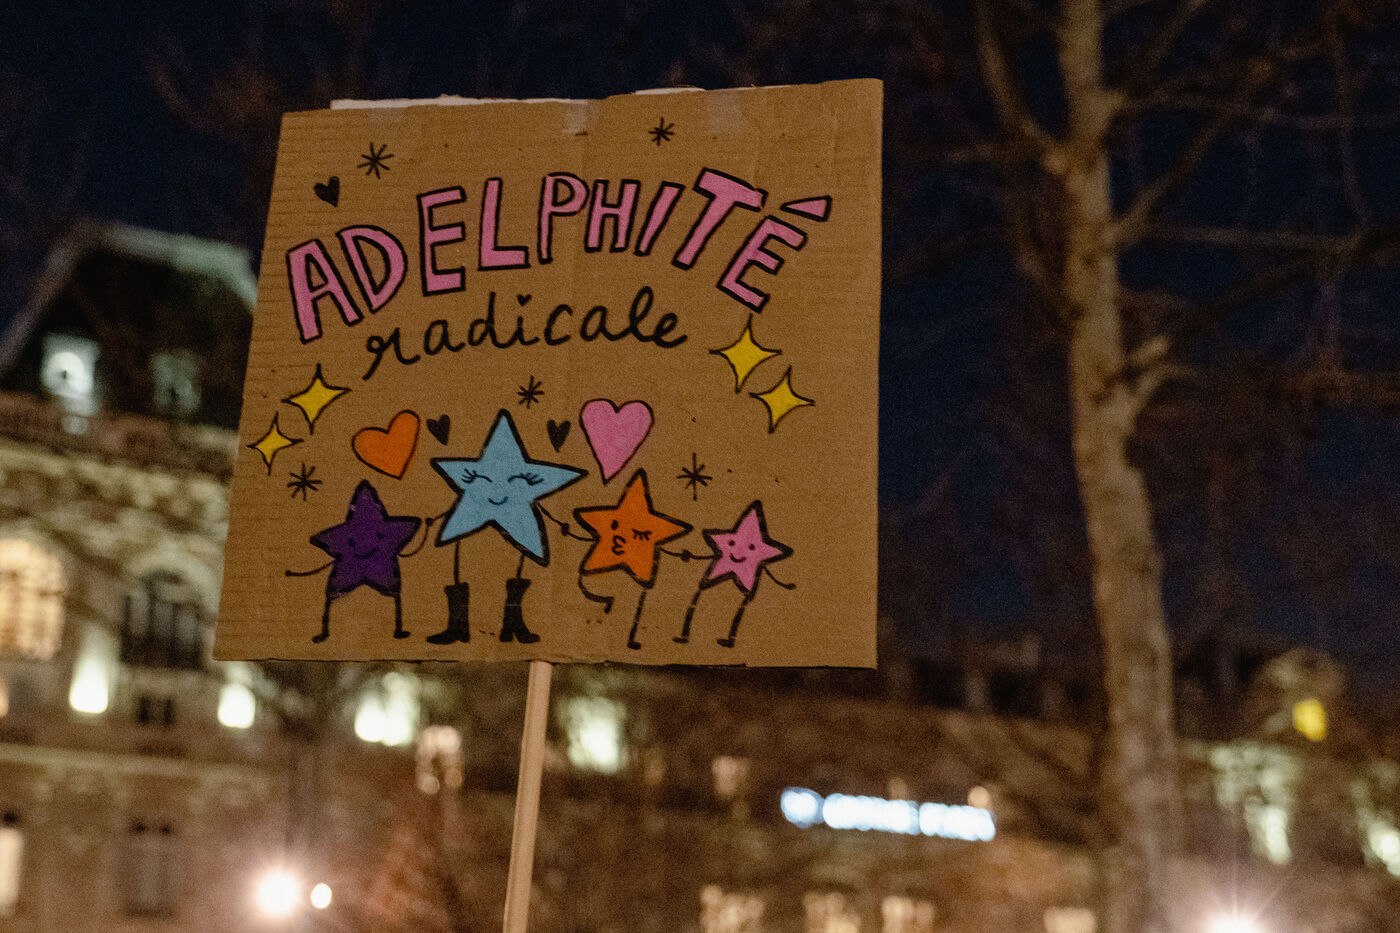 ADELPHITÉ
radicale